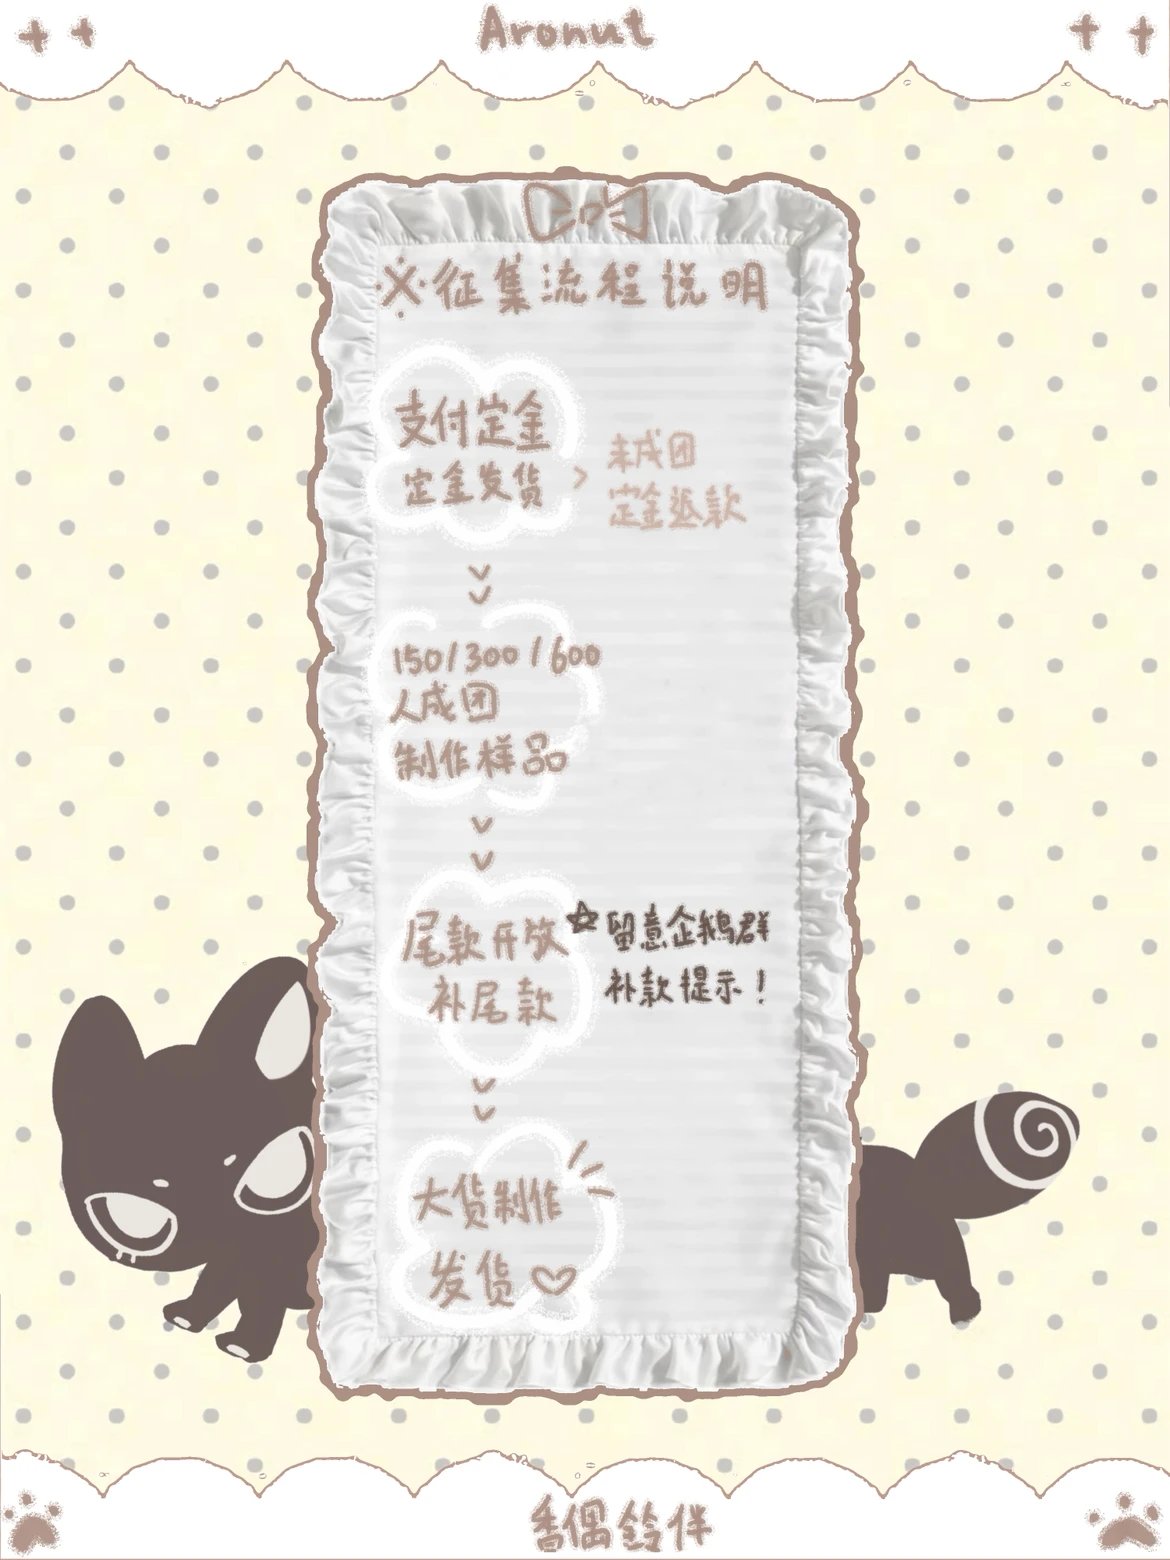 Aronut
※征集流程说明
支付定金
定金发货
未成团
定金退款
150/300/600
人成团
制作样品
尾款开放
补尾款
☆留意企鹅群
补款提示！
大货制作
发货♡
香偶铃伴